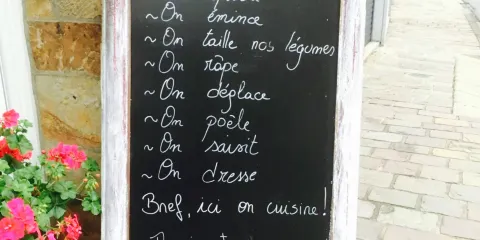 ~ On émince
~ On taille nos légumes
~ On râpe
~ On déglace
~ On poêle
~ On saisit
~ On dresse
Bref, ici on cuisine!